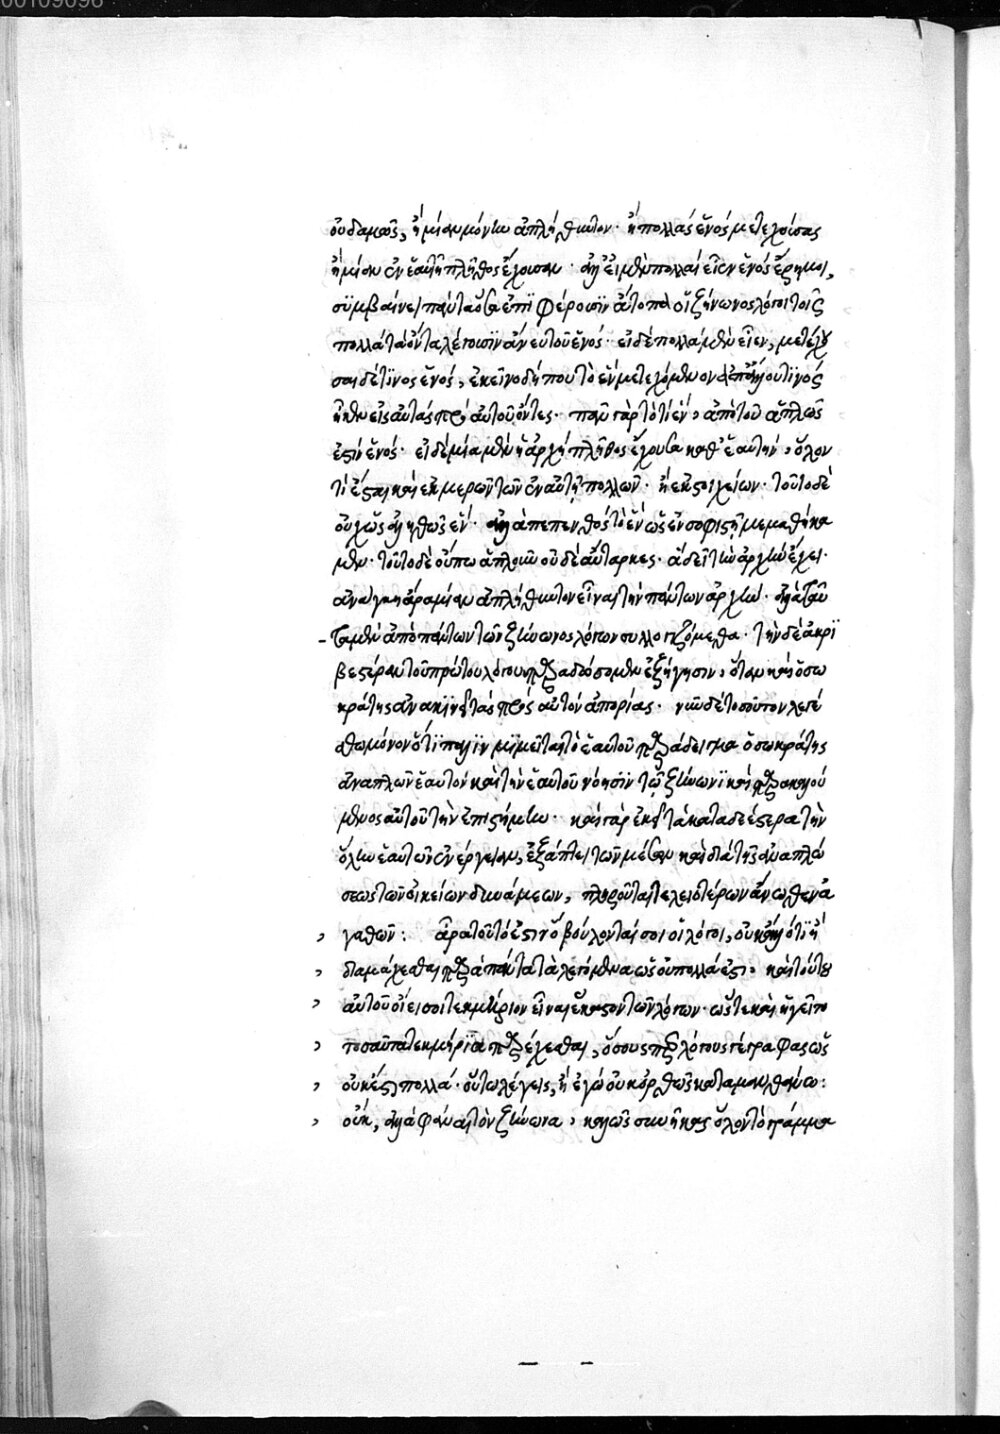 οὐδαμῶς, ἢ μίαν μόνην ἀπλήθυντον· ἢ πολλὰς ἑνὸς μετεχούσας
ἢ μίαν ἐν ἑαυτῇ πλῆθος ἔχουσαν· ἀλλ' εἰ μὲν πολλαὶ εἰσὶν ἑνὸς ἔρημοι,
συμβαίνει πάντα ὅσα ἐπιφέρουσιν ἄτοπα οἱ ζήνωνος λόγοι τοῖς
πολλὰ τὰ ὄντα λέγουσιν ἄνευ τοῦ ἑνός· εἰ δὲ πολλαὶ μὲν εἶεν, μετέχου
σαι δέ τινος ἑνός, ἐκεῖνο δήπου τὸ ἓν μετεχόμενον ἀπ' ἄλλου τινὸς
ἥκει εἰς αὐτὰς πρὸ αὐτοῦ ὄντος· πᾶν γὰρ τὸ τὶ ἕν, ἀπὸ τοῦ ἁπλῶς
ἐστιν ἑνός· εἰ δὲ μία μὲν ἡ ἀρχὴ πλῆθος ἔχουσα καθ' ἑαυτήν, ὅλον
τι ἔσται καὶ ἐκ μερῶν τῶν ἐν αὐτῇ πολλῶν· ἢ ἐκ στοιχείων· τοῦτο δὲ
οὐχ ὡς ἀληθῶς ἕν· ἀλλὰ πεπονθὸς τὸ ἓν ὡς ἐν σοφιστῇ μεμαθήκα
μεν· τοῦτο δὲ οὔπω ἁπλοῦν οὐδὲ αὔταρκες· ἃ δεῖ τὴν ἀρχὴν ἔχειν·
ἀνάγκη ἄρα μίαν ἀπλήθυντον εἶναι τὴν πάντων ἀρχήν· ἀλλὰ ταῦ
τα μὲν ἀπὸ πάντων τῶν ζήνωνος λόγων συλλογιζόμεθα· τὴν δὲ ἀκρι
βεστέραν τοῦ πρώτου λόγου παραδώσομεν ἐξήγησιν, ὅταν καὶ ὁ σω
κράτης ἀνακινῇ τὰς πρὸς αὐτὸν ἀπορίας· νῦν δὲ τοσοῦτον λεγέ
σθω μόνον ὅτι πάλιν μιμεῖται τὸ ἑαυτοῦ παράδειγμα ὁ σωκράτης
ἀναπλῶν ἑαυτὸν καὶ τὴν ἑαυτοῦ νόησιν τῷ ζήνωνι καὶ παρακαλού
μενος αὐτοῦ τὴν ἐπιστήμην· καὶ γὰρ ἐκεῖ τὰ καταδεέστερα τὴν
ὅλην ἑαυτῶν ἐνέργειαν, ἐξάπτει τῶν μέσων καὶ διὰ τῆς ἀναπλώ
σεως τῶν οἰκείων δυνάμεων, πληροῦται τελειοτέρων ἄνωθεν ἀ
γαθῶν: ἆρα τοῦτό ἐστιν ὃ βούλονταί σοι οἱ λόγοι, οὐκ ἄλλό τι ἢ
διαμάχεσθαι παρὰ πάντα τὰ λεγόμενα ὡς οὐ πολλά ἐστι· καὶ τούτου
αὐτοῦ οἴει σοι τεκμήριον εἶναι ἕκαστον τῶν λόγων· ὥστε καὶ ἡγεῖ το
τοσαῦτα τεκμήρια παρέχεσθαι, ὅσους περ λόγους γέγραφας ὡς
οὐκ ἔστι πολλά· οὕτω λέγεις, ἢ ἐγὼ οὐκ ὀρθῶς καταμανθάνω:
οὔκ, ἀλλὰ φάναι τὸν ζήνωνα, καλῶς συνῆκας ὅλον τὸ γράμμα